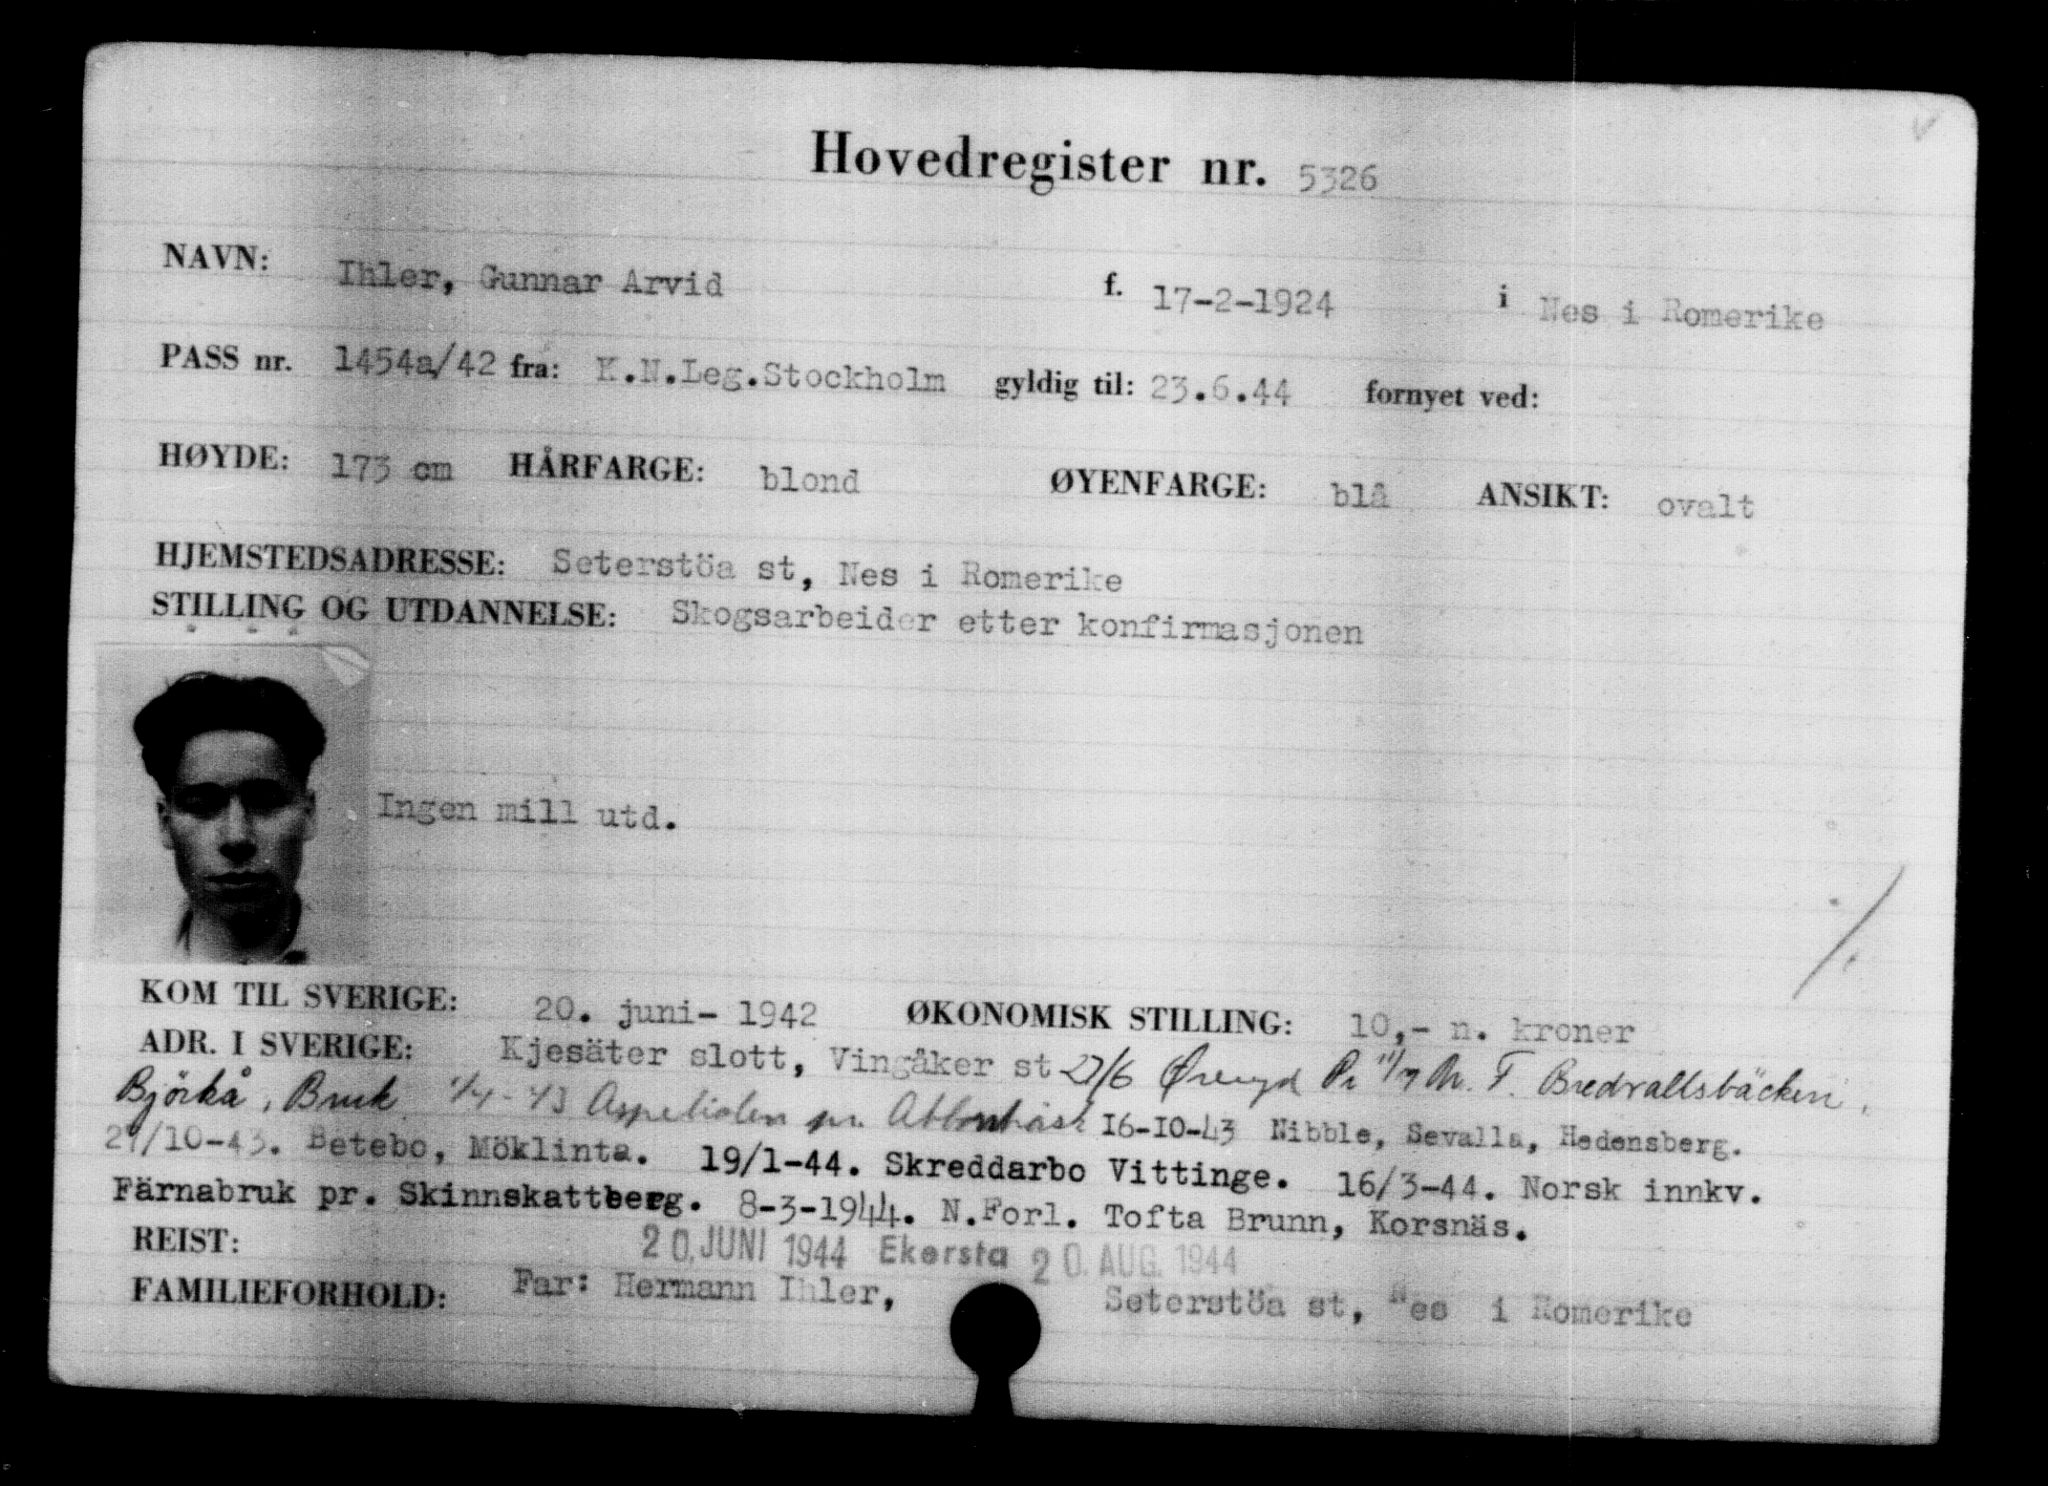 Hovedregister nr. 5326
NAVN: Ihler, Gunnar Arvid f. 17-2-1924 i Nes i Romerike
PASS nr. 1454a/42 fra: K.N.Leg.Stockholm gyldig til: 23.6.44 fornyet ved:
HØYDE: 173 cm HÅRFARGE: blond ØYENFARGE: blå ANSIKT: ovalt
HJEMSTEDSADRESSE: Seterstöa st, Nes i Romerike
STILLING OG UTDANNELSE: Skogsarbeider etter konfirmasjonen
Ingen mill utd.
KOM TIL SVERIGE: 20. juni- 1942 ØKONOMISK STILLING: 10,- n. kroner
ADR. I SVERIGE: Kjesäter slott, Vingåker st 27/6 Bredvallsbäcken,
Björkå, Bruk 16-10-43 Nibble, Sevalla, Hedensberg.
/10-43. Betebo, Möklinta. 19/1-44. Skreddarbo Vittinge. 16/3-44. Norsk innkv.
Färnabruk pr. Skinnskattberg. 8-3-1944. N.Forl. Tofta Brunn, Korsnäs.
REIST: 20. JUNI 1944 Ekersta 20. AUG. 1944
FAMILIEFORHOLD: Far: Hermann Ihler, Seterstöa st, Nes i Romerike